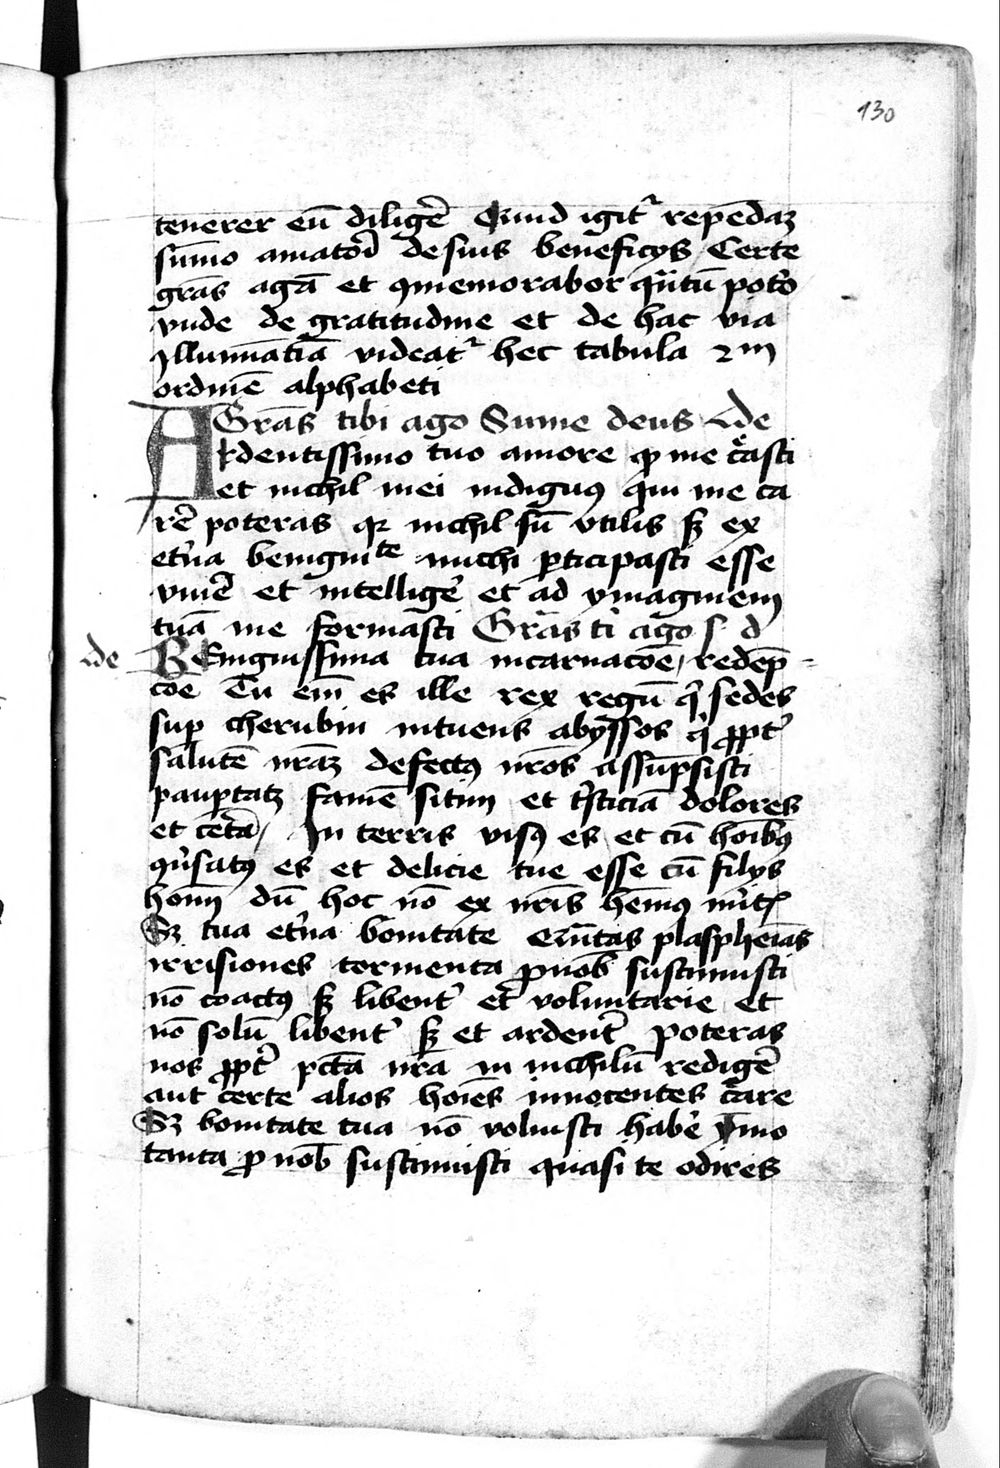 130
tenerer eū diligē Quid igit᷑ repēdaꝫ
sūmo amatoī de suis beneficijs Certe
grās agā et ꝯmemorabor qn̄tū poto
vnde de gratitudine et de hac via
Illumīatīa videat᷑ hec tabula 2m
ordinē alphabeti
Grās tibi ago Sume deus de
Ardentissimo tuo amore ꝙ me c̄asti
et nichil mei indiguꝰ qui me ca
rē poteras qꝛ nichil sū vtilis sꝫ ex
et̄na benignite michi ꝑticipasti esse
viuē et intelligē et ad ymaginem
tuā me formasti Grās ti ago s d
de Benignissima tua incarnacōe redēp
cōe Tu em̄ es ille rex regū q̄ sedes
suꝑ cherubin intuens abyssos q̇ ꝓpt̄
salutē nrāꝫ defectꝰ nrōs assūpsisti
pauꝑtatꝫ famē sitim et t̄sticiā dolores
et cet̄a In terris visꝰ es et cū hoībꝰ
ꝯūsatꝰ es et delicie tue esse cū filijs
hoīm dū hoc nō ex nrīs hēmꝰ
Sꝫ tua et̄na bonitate plasphēias
irrisiones tormenta ꝓ nob̄ sustinuisti
nō coactꝰ sꝫ libent̄ et voluntarie et
nō solū libent̄ sꝫ et ardent̄ Poteras
nos ꝓpt̄ pctā nrā in nichilū redigē
aut certe alios hoīes innocentes c̄are
Sꝫ bonitate tua nō voluisti habē ymo
tanta ꝓ nob̄ sustinuisti quasi te odires